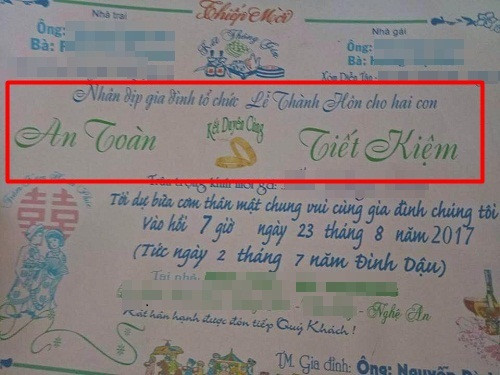 Thiếp Mời
Nhà trai
Nhà gái
Ông:
Ông:
Bà:
Bà:
Nhân dịp gia đình tổ chức Lễ Thành Hôn cho hai con
An Toàn
Kết Duyên Cùng
Tiết Kiệm
Trân trọng kính mời
Tới dự bữa cơm thân mật chung vui cùng gia đình chúng tôi
Vào hồi 7 giờ ngày 23 tháng 8 năm 2017
(Tức ngày 2 tháng 7 năm Đinh Dậu)
Tại nhà:
- Nghệ An
Rất hân hạnh được đón tiếp Quý Khách!
TM. Gia đình: Ông: Nguyễn